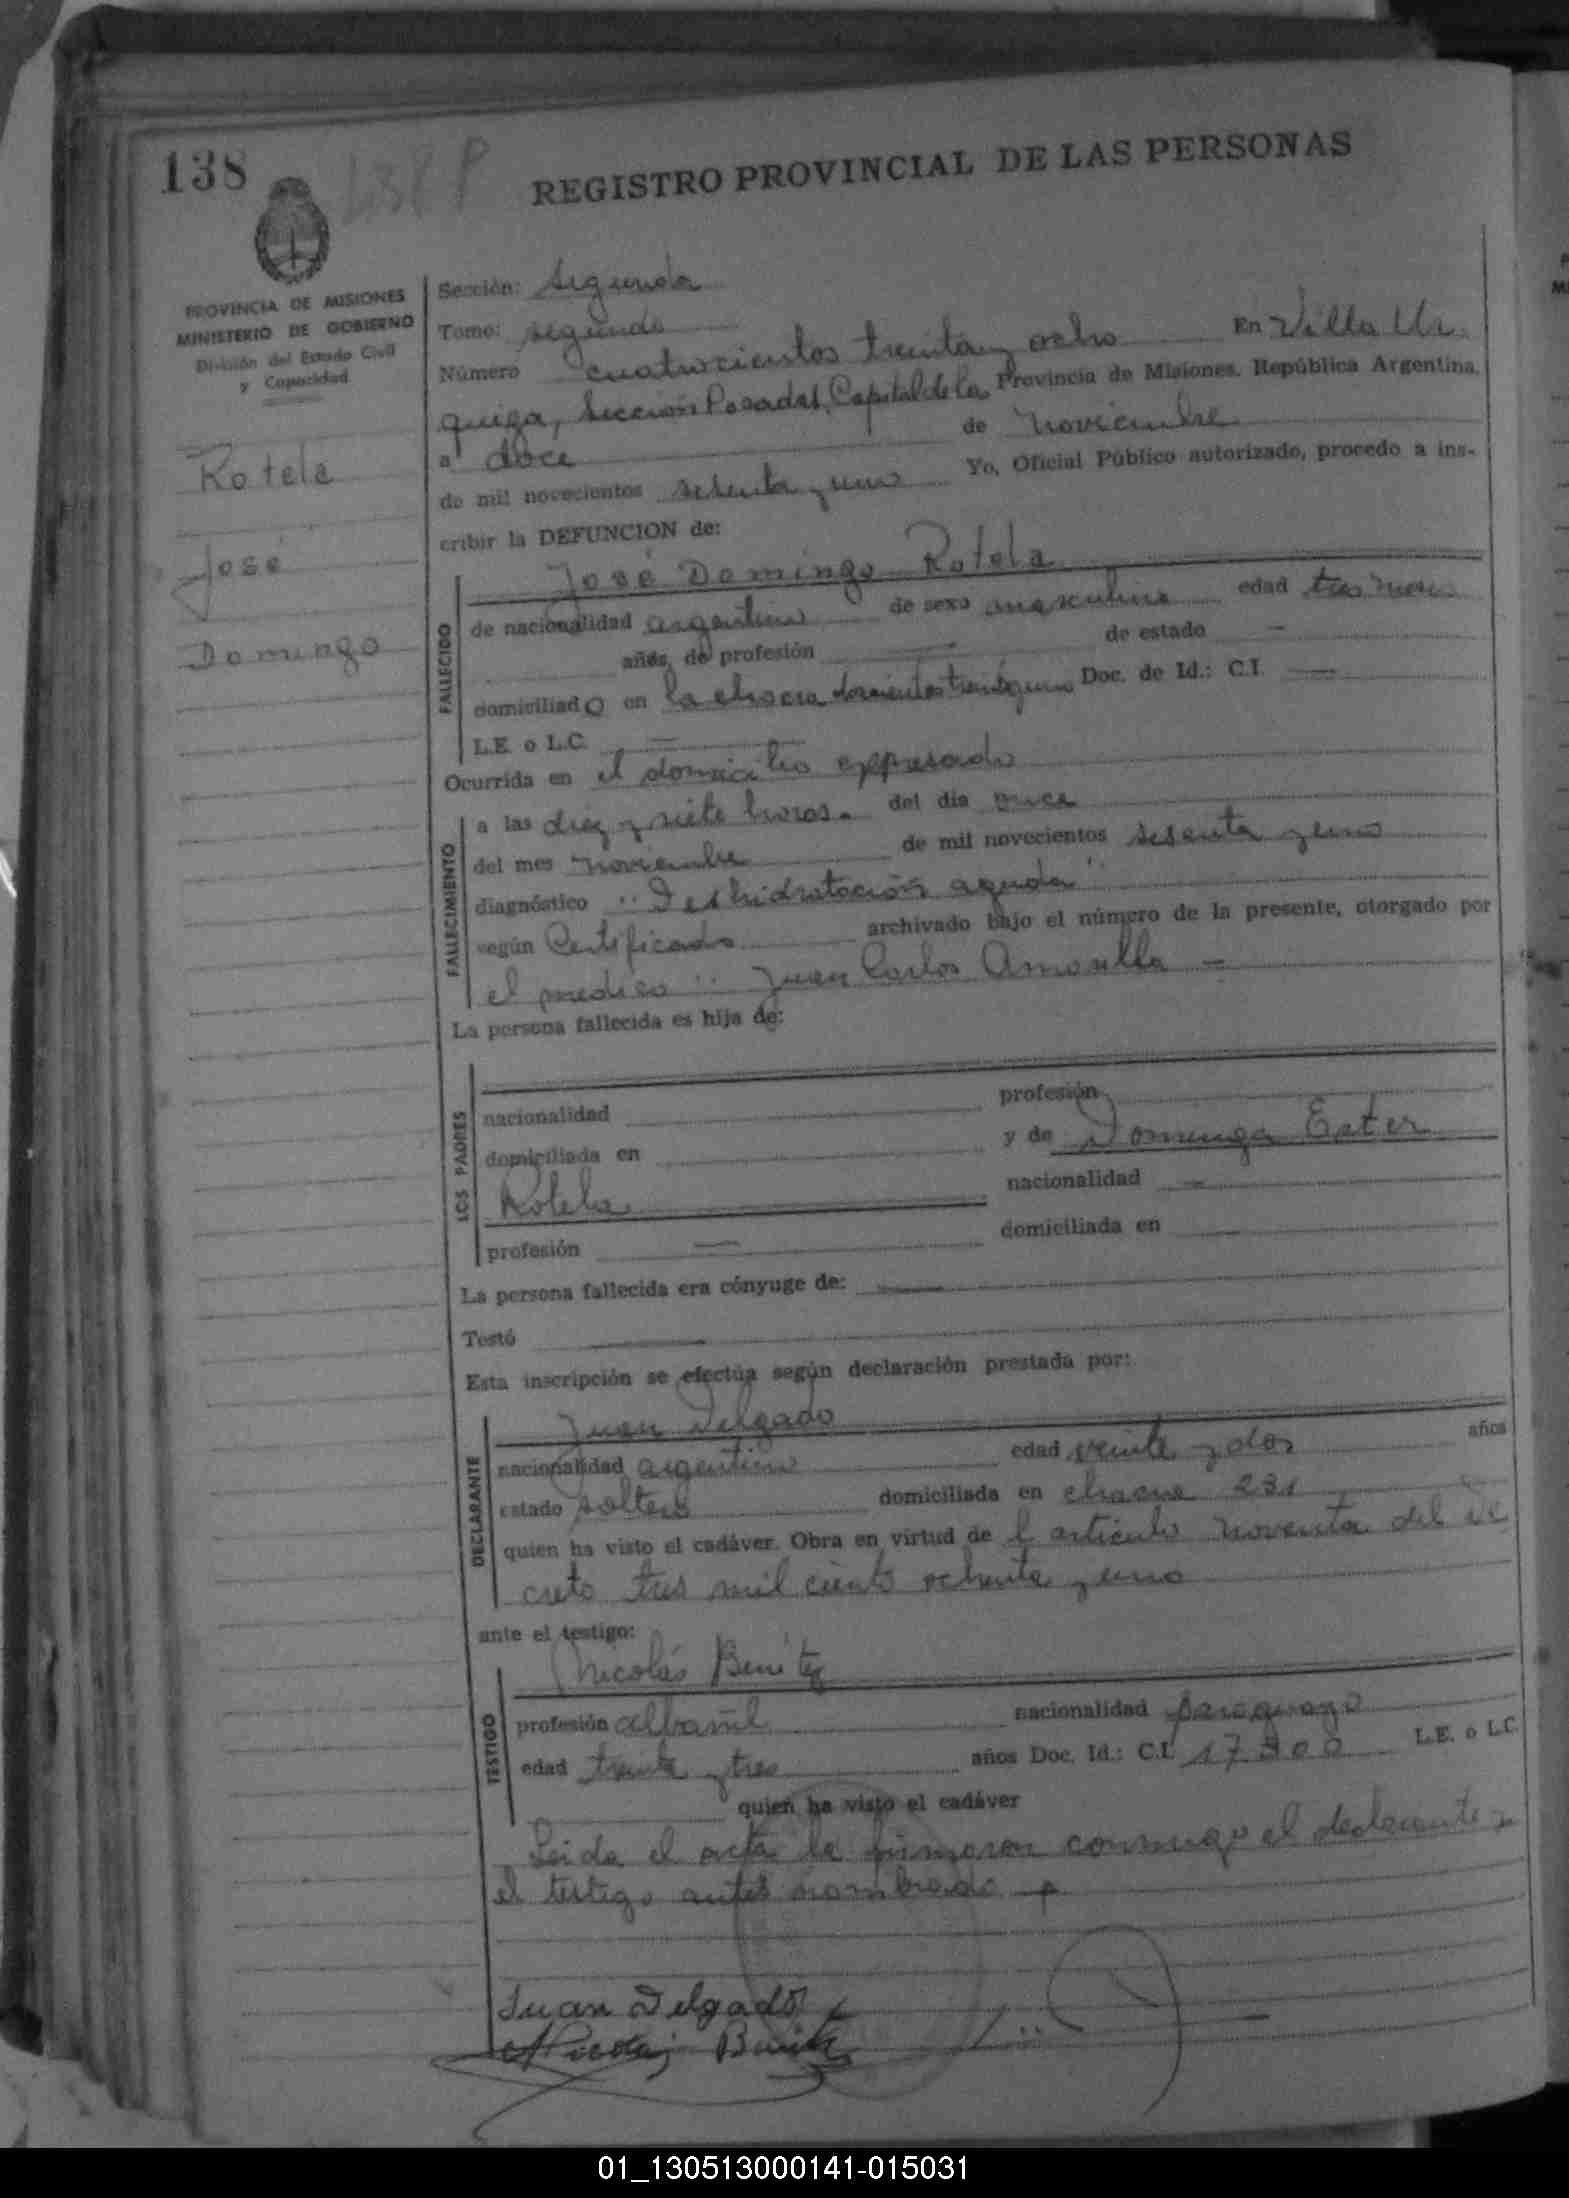 138
438 P
REGISTRO PROVINCIAL DE LAS PERSONAS
PROVINCIA DE MISIONES
MINISTERIO DE GOBIERNO
División del Estado Civil
y Capacidad
Rotela
José
Domingo
Sección: segunda
Tomo: segundo
Número cuatrocientos treinta y ocho En Villa Ur
quiza, Sección Posadas, Capital de la Provincia de Misiones, República Argentina,
a doce de noviembre
de mil novecientos sesenta y uno Yo, Oficial Público autorizado, procedo a ins-
cribir la DEFUNCION de:
José Domingo Rotela
FALLECIDO
de nacionalidad argentino de sexo masculino edad tres meses
años, de profesión — de estado —
domiciliado en la chacra doscientos treinta y uno Doc. de Id.: C.I. —
L.E. o L.C. —
Ocurrida en el domicilio expresado
FALLECIMIENTO
a las diez y siete horas. del día once
del mes noviembre de mil novecientos sesenta y uno
diagnóstico "Deshidratación aguda"
según Certificado archivado bajo el número de la presente, otorgado por
el médico: Juan Carlos Amarilla —
La persona fallecida es hija de:
LOS PADRES
nacionalidad profesión
domiciliada en y de Dominga Ester
Rotela nacionalidad —
profesión — domiciliada en —
La persona fallecida era cónyuge de: —
Testó —
Esta inscripción se efectúa según declaración prestada por:
Juan Delgado
DECLARANTE
nacionalidad argentino edad veinte y dos años
estado soltero domiciliada en chacra 231
quien ha visto el cadáver. Obra en virtud de l artículo noventa del de
creto tres mil ciento ochenta y uno
ante el testigo:
Nicolás Benítez
TESTIGO
profesión albañil nacionalidad paraguayo
edad treinta y tres años Doc. Id.: C.I. 17900 L.E. o L.C.
quien ha visto el cadáver
Leída el acta la firmaron conmigo el declarante y
el testigo antes nombrado
Juan Delgado
Nicolás Benítez
01_130513000141-015031